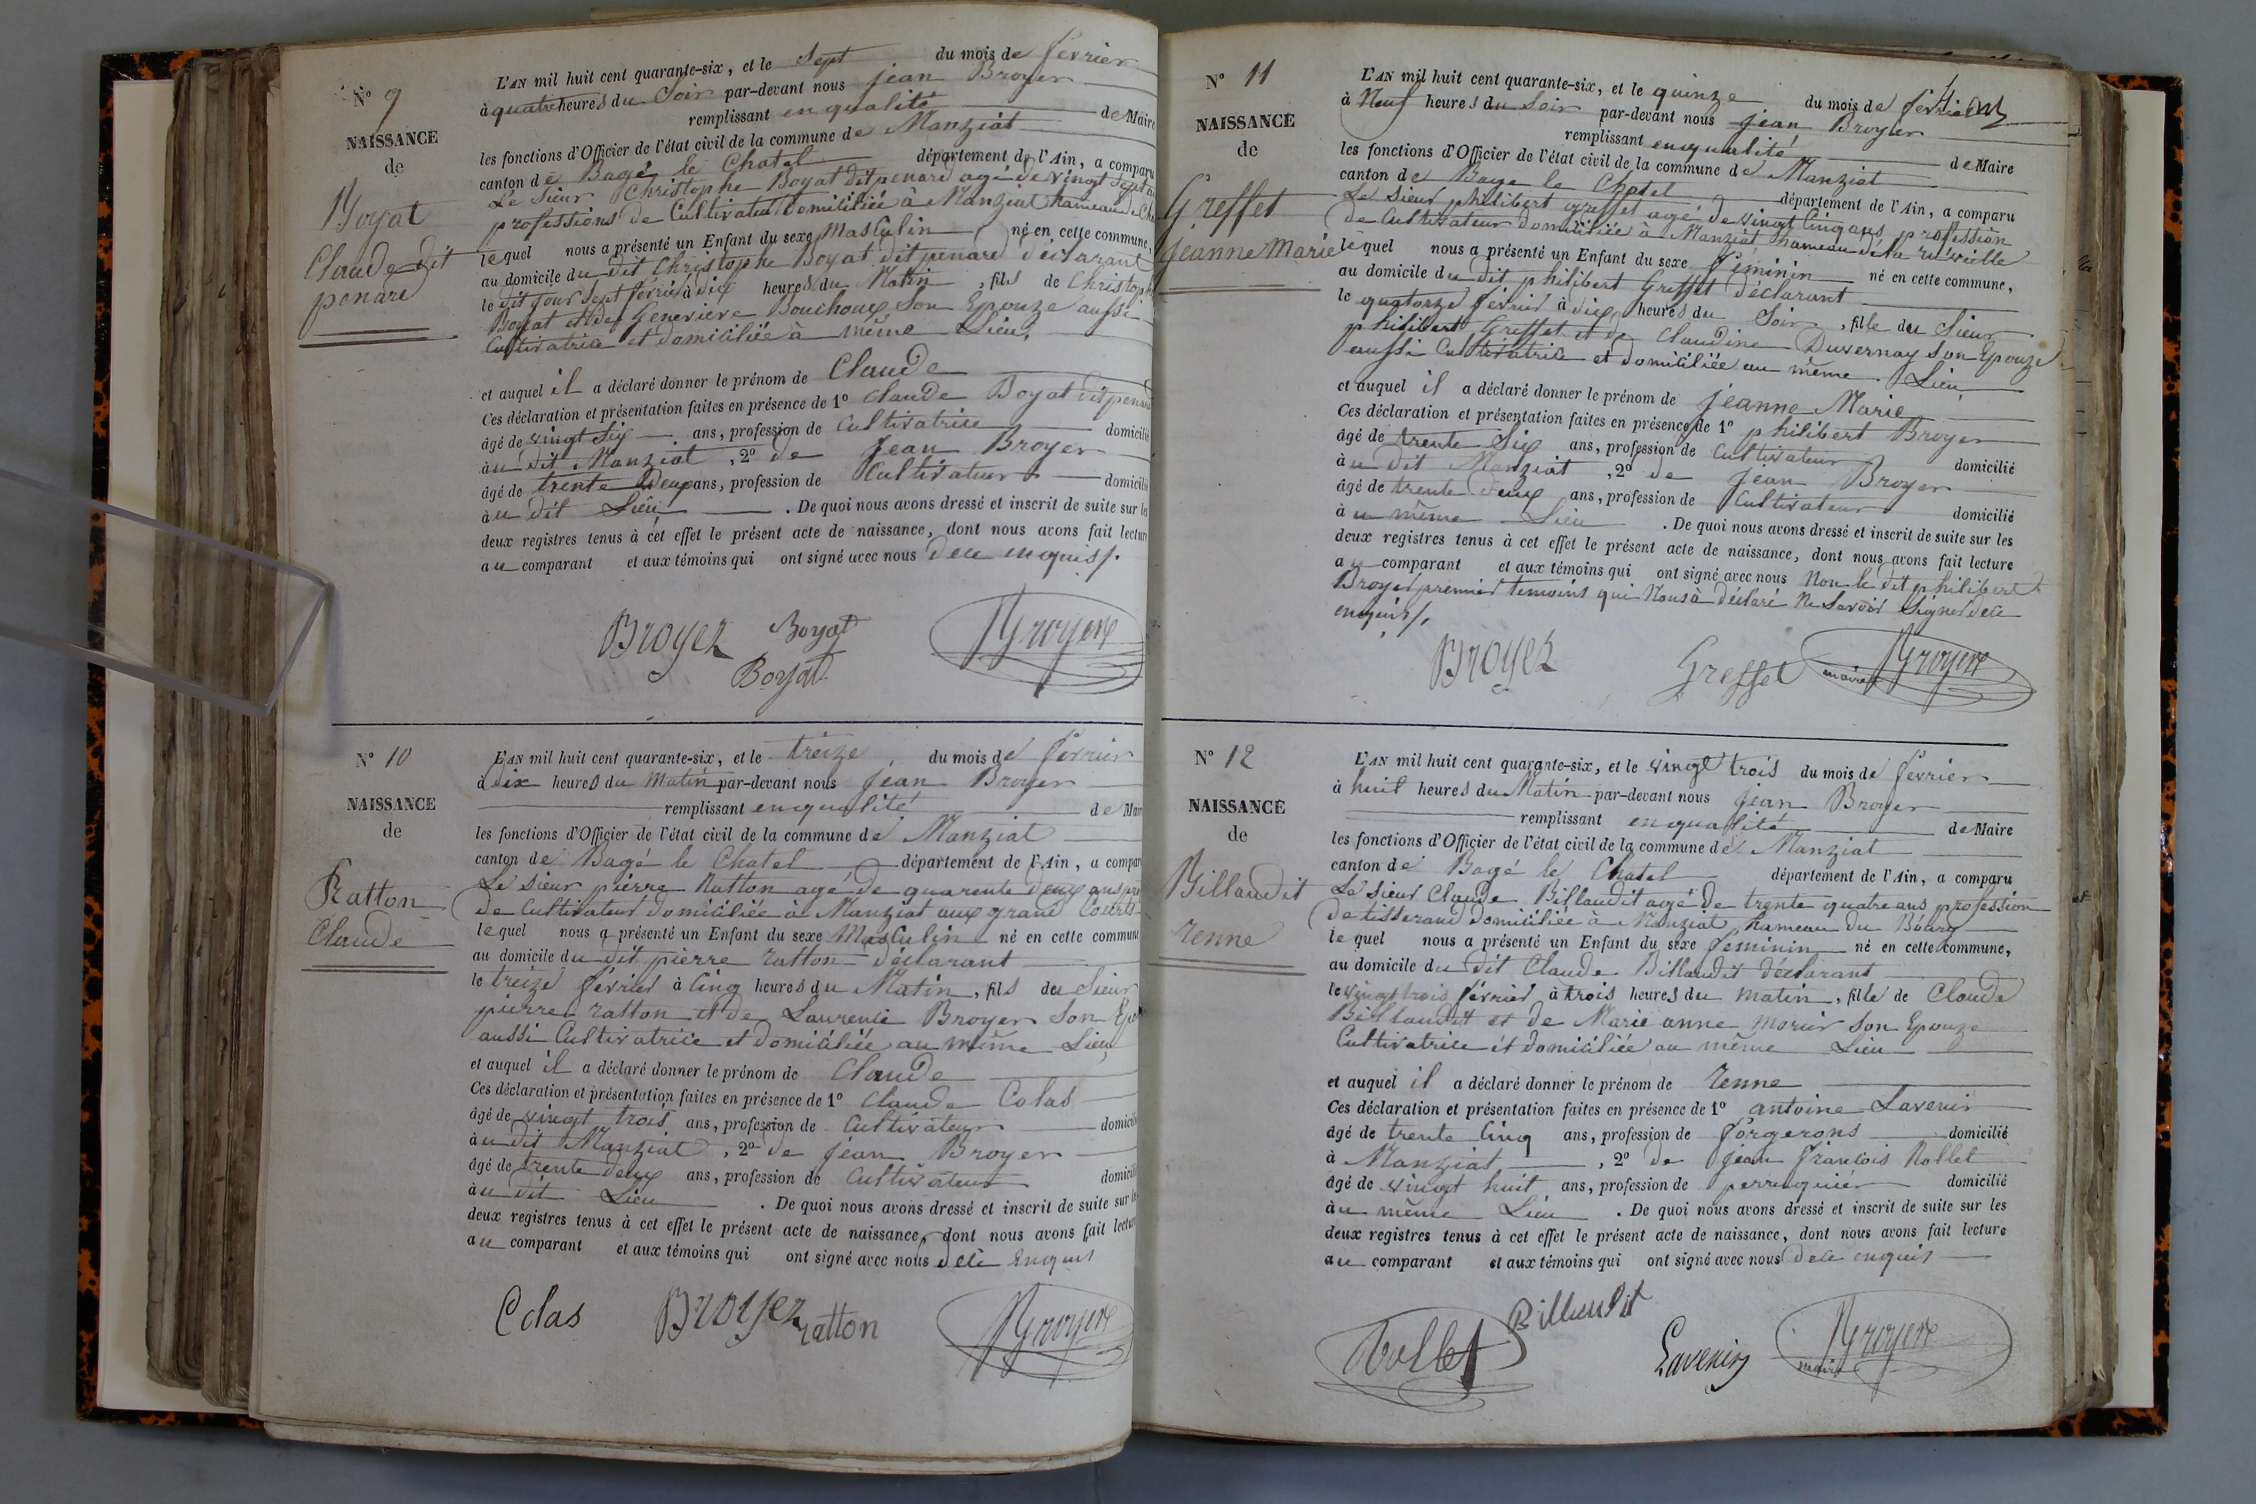 N° 9
NAISSANCE
de
Boyat
Claude dit
penard
L'AN mil huit cent quarante-six, et le Sept du mois de fevrier
à quatre heures du Soir par-devant nous jean Broyer
remplissant en qualité de Maire
les fonctions d'Officier de l'état civil de la commune de Manziat
canton de Bagé le Chatel département de l'Ain, a comparu
Le Sieur Christophe Boyat dit penard agé de vingt Sept
professions de Cultivateur domiciliée à Manziat hameau de
lequel nous a présenté un Enfant du sexe masculin né en cette commune,
au domicile du dit Christophe Boyat dit penard déclarant
le dit jour Sept fevrier à dix heures du Matin, fils de Christophe
Boyat et de Genevieve Bouchoux Son Epouze aussi
Cultivatrice et domiciliée à même Lieu,
et auquel il a déclaré donner le prénom de Claude
Ces déclaration et présentation faites en présence de 1° Claude Boyat dit penard
âgé de vingt Six ans, profession de Cultivatrice domicilié
à u dit Manziat, 2° de Jean Broyer
âgé de trente deux ans, profession de Cultivateur domicilié
à u dit Lieu. De quoi nous avons dressé et inscrit de suite sur les
deux registres tenus à cet effet le présent acte de naissance, dont nous avons fait lecture
au comparant et aux témoins qui ont signé avec nous dece enquis/.
Broyer Boyat
Boyat Broyer
N° 10
NAISSANCE
de
Ratton
Claude
L'AN mil huit cent quarante-six, et le treize du mois de fevrier
à dix heures du Matin par-devant nous jean Broyer
remplissant en qualité de Maire
les fonctions d'Officier de l'état civil de la commune de Manziat
canton de Bagé le Chatel département de l'Ain, a comparu
Le Sieur pierre Ratton agé de quarente deux ans
de Cultivateur domiciliée à Manziat aux grand Courts
lequel nous a présenté un Enfant du sexe Masculin né en cette commune
au domicile du dit pierre ratton déclarant
le treize février à Cinq heures du Matin, fils du Sieur
pierre ratton et de Laurence Broyer Son
aussi Cultivatrice et domiciliée au même Lieu
et auquel il a déclaré donner le prénom de Claude
Ces déclaration et présentation faites en présence de 1° Claude Colas
âgé de vingt trois ans, profession de Cultivateur domicilié
à u dit Manziat, 2° de jean Broyer
âgé de trente deux ans, profession de Cultivateur domicilié
à u dit Lieu. De quoi nous avons dressé et inscrit de suite sur les
deux registres tenus à cet effet le présent acte de naissance, dont nous avons fait lecture
au comparant et aux témoins qui ont signé avec nous dece Enquis
Colas Broyer ratton Broyer
N° 11
NAISSANCE
de
Greffet
jeanne Marie
L'AN mil huit cent quarante-six, et le quinze du mois de fevrier
à Neuf heures du Soir par-devant nous jean Broyer
remplissant en qualité de Maire
les fonctions d'Officier de l'état civil de la commune de Manziat
canton de Bage le Chatel département de l'Ain, a comparu
Le Sieur philibert greffet agé de vingt Cinq ans profession
de Cultivateur domiciliée à Manziat hameau de la
lequel nous a présenté un Enfant du sexe feminin né en cette commune,
au domicile du dit philibert Greffet déclarant
le quatorze février à dix heures du Soir, fille du Sieur
philibert Greffet et de Claudine Duvernay Son Epouze
aussi Cultivatrice et domiciliée au même Lieu
et auquel il a déclaré donner le prénom de jeanne Marie
Ces déclaration et présentation faites en présence de 1° philibert Broyer
âgé de trente Six ans, profession de Cultivateur domicilié
à u dit Manziat, 2° de jean Broyer
âgé de trente deux ans, profession de Cultivateur domicilié
à u même Lieu. De quoi nous avons dressé et inscrit de suite sur les
deux registres tenus à cet effet le présent acte de naissance, dont nous avons fait lecture
au comparant et aux témoins qui ont signé avec nous Non le dit philibert
Broyer premier temoins qui Nous à déclaré Ne Savoir Signer dece
enquis/.
Broyer Greffet Broyer
maire
N° 12
NAISSANCE
de
Billaudit
renne
L'AN mil huit cent quarante-six, et le vingt trois du mois de fevrier
à huit heures du Matin par-devant nous jean Broyer
remplissant en qualité de Maire
les fonctions d'Officier de l'état civil de la commune de Manziat
canton de Bagé le Chatel département de l'Ain, a comparu
Le Sieur Claude Billaudit agé de trente quatre ans profession
de tisserand domiciliée à Manziat hameau du Bourg
lequel nous a présenté un Enfant du sexe feminin né en cette commune,
au domicile du dit Claude Billaudit déclarant
le vingt trois février à trois heures du matin, fille de Claude
Billaudit et de Marie anne morier Son Epouze
Cultivatrice et domiciliée au même Lieu
et auquel il a déclaré donner le prénom de renne
Ces déclaration et présentation faites en présence de 1° antoine Lavenir
âgé de trente Cinq ans, profession de forgerons domicilié
à Manziat, 2° de jean françois Rollet
âgé de vingt huit ans, profession de perruquier domicilié
à u même Lieu. De quoi nous avons dressé et inscrit de suite sur les
deux registres tenus à cet effet le présent acte de naissance, dont nous avons fait lecture
au comparant et aux témoins qui ont signé avec nous dece enquis
Rollet Billaudit Lavenir Broyer
maire